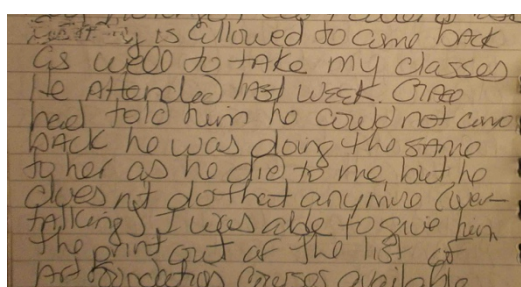 is allowed to come back
as well to take my classes
He attended last week.
had told him he could not come
back he was doing the same
to her as he did to me, but he
does not do that anymore (over-
talking) I was able to give him
the print out of the list of
Art Foundation Courses available